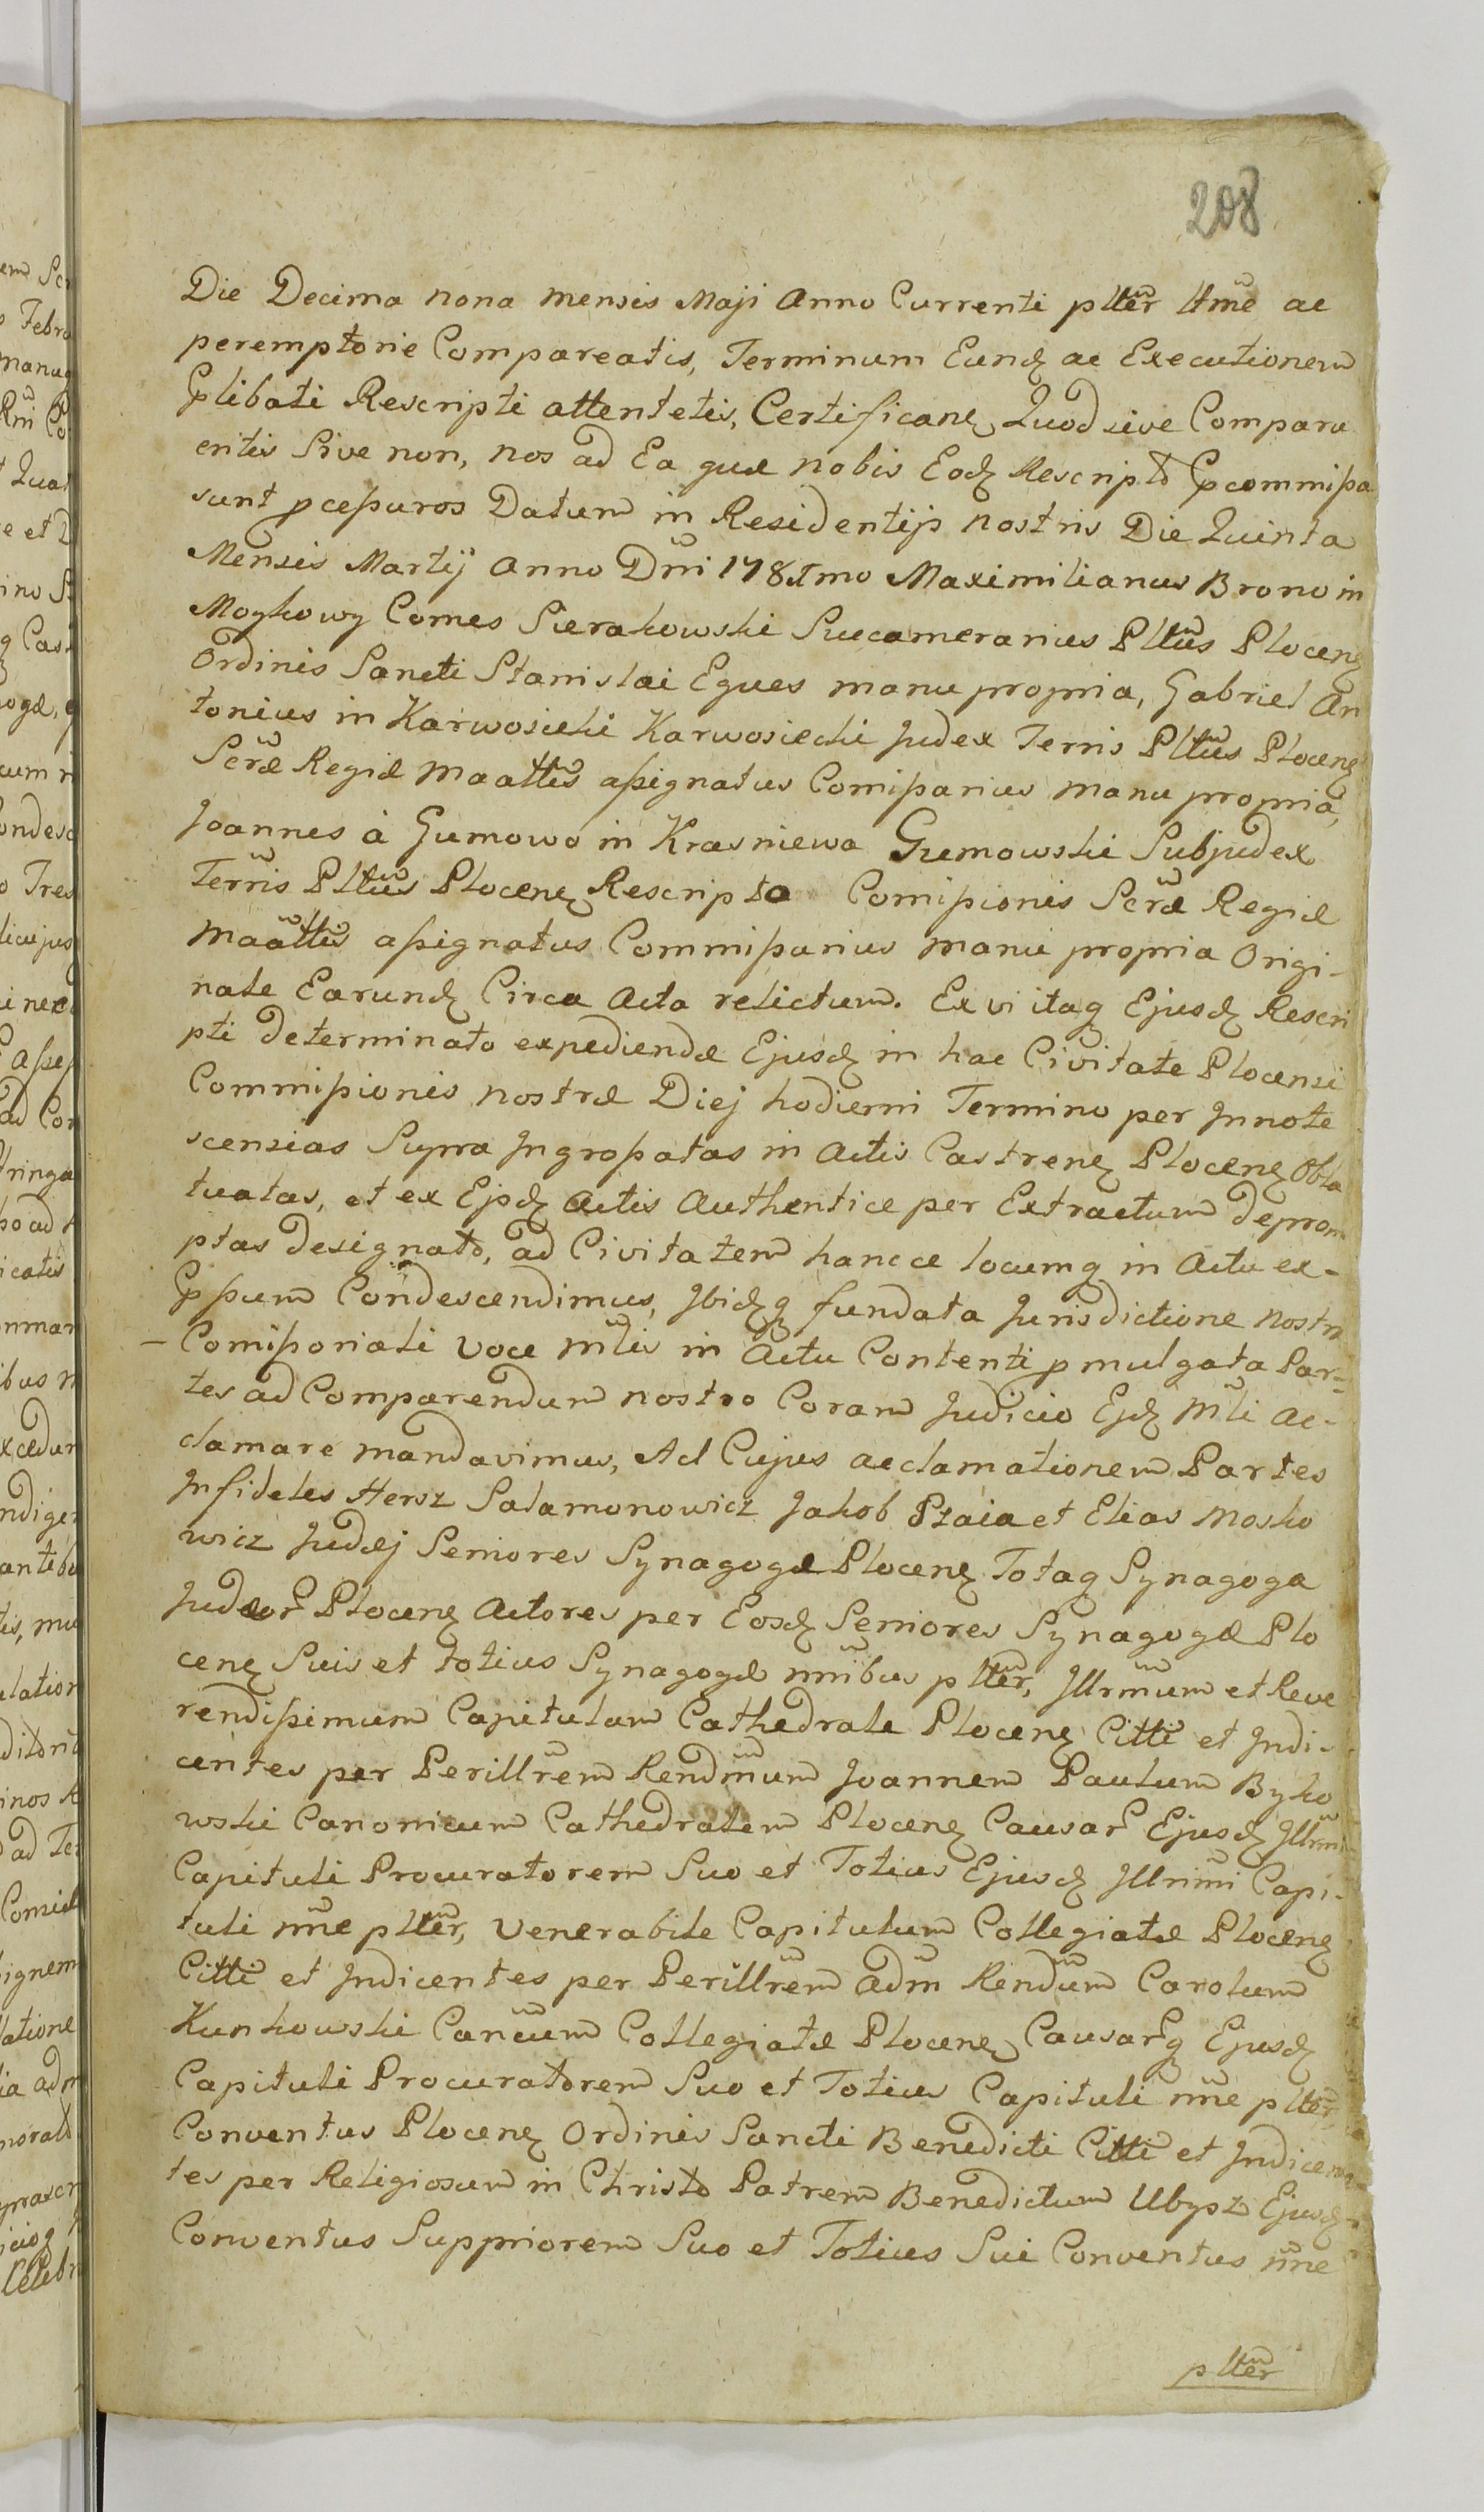 208
Die Decima nona mensis Maji Anno Currenti pltter ltme ac
peremptorie Compareatis, Terminum Eundꝫ ac Executionem
Plibati Rescripti attentetis, Certificanꝫ Quod sive Comparu
eritis Sive non, nos ad Ea quæ nobis Eodꝫ Rescripto Pcommissa
sunt pcessuros Datum in Residentijs nostris Die Quinta
Mensis Martij Anno Dni 178Imo Maximilianus Brono in
Moykowy Comes Sierakowski Succamerarius Plttus Plocenꝫ
Ordinis Sancti Stanislai Eques manu propria, Gabriel An
tonius in Karwosieki Karwosiecki Judex Terris Plttus Plocenꝫ
Scræ Regiæ Maattis assignatus Comissarius manu propria,
Joannes à Gumowo in Krasniewa Gumowski Subjudex
Terris Plttus Plocenꝫ Rescripto Comissionis Scræ Regiæ
Maattis assignatus Commissarius manu propria Origi-
nale Earundꝫ Circa Acta relictum. Ex vi itaq Ejusdꝫ Rescri
pti determinato expediendæ Ejusdꝫ in hac Civitate Plocensi
Commissionis nostræ Diej hodierni Termino per Innote
scensias Supra Ingrossatas in Actis Castrenꝫ Plocenꝫ Obla
tuatas, et ex Ejsdꝫ Actis Authentice per Extractum deprom
ptas designato, ad Civitatem hancce locumq in Actu ex-
Pssum Condescendimus, Ibidꝫq fundata Jurisdictione nostra
Comissoriali voce mlis in Actu Contenti pmulgata Par-
tes ad Comparendum nostro Coram Judicio Ejdꝫ Mli Ac-
clamare mandavimus, Ad Cujus acclamationem Partes
Infideles Hersz Salamonowicz Jakob Pzaia et Elias Mosko
wicz Judæj Seniores Synagogæ Plocenꝫ Totaq Synagoga
Judæor Plocenꝫ Actores per Eosdꝫ Seniores Synagogæ Plo
cenꝫ Suis et totius Synagogæ nnibus pltter, Illrmum et Reve
rendissimum Capitulum Cathedrale Plocenꝫ Citti et Indi-
centes per Perillrem Rendmum Joannem Paulum Byko
wski Canonicum Cathedralem Plocenꝫ Causar Ejusdꝫ Illrmi
Capituli Procuratorem Suo et Totius Ejusdꝫ Illrimi Capi-
tuli nne pltter, Venerabile Capitulum Collegiatæ Plocenꝫ
Citti et Indicentes per Perillrem Adm Rendum Carolum
Kunkowski Cancum Collegiatæ Plocenꝫ Causarq Ejusdꝫ
Capituli Procuratorem Suo et Totius Capituli nne pltter,
Conventus Plocenꝫ Ordinis Sancti Benedicti Citti et Indicen
tes per Religiosum in Christo Patrem Benedictum Ubysz Ejusdꝫ
Conventus Suppriorem Suo et Totius Sui Conventus nne
pltter